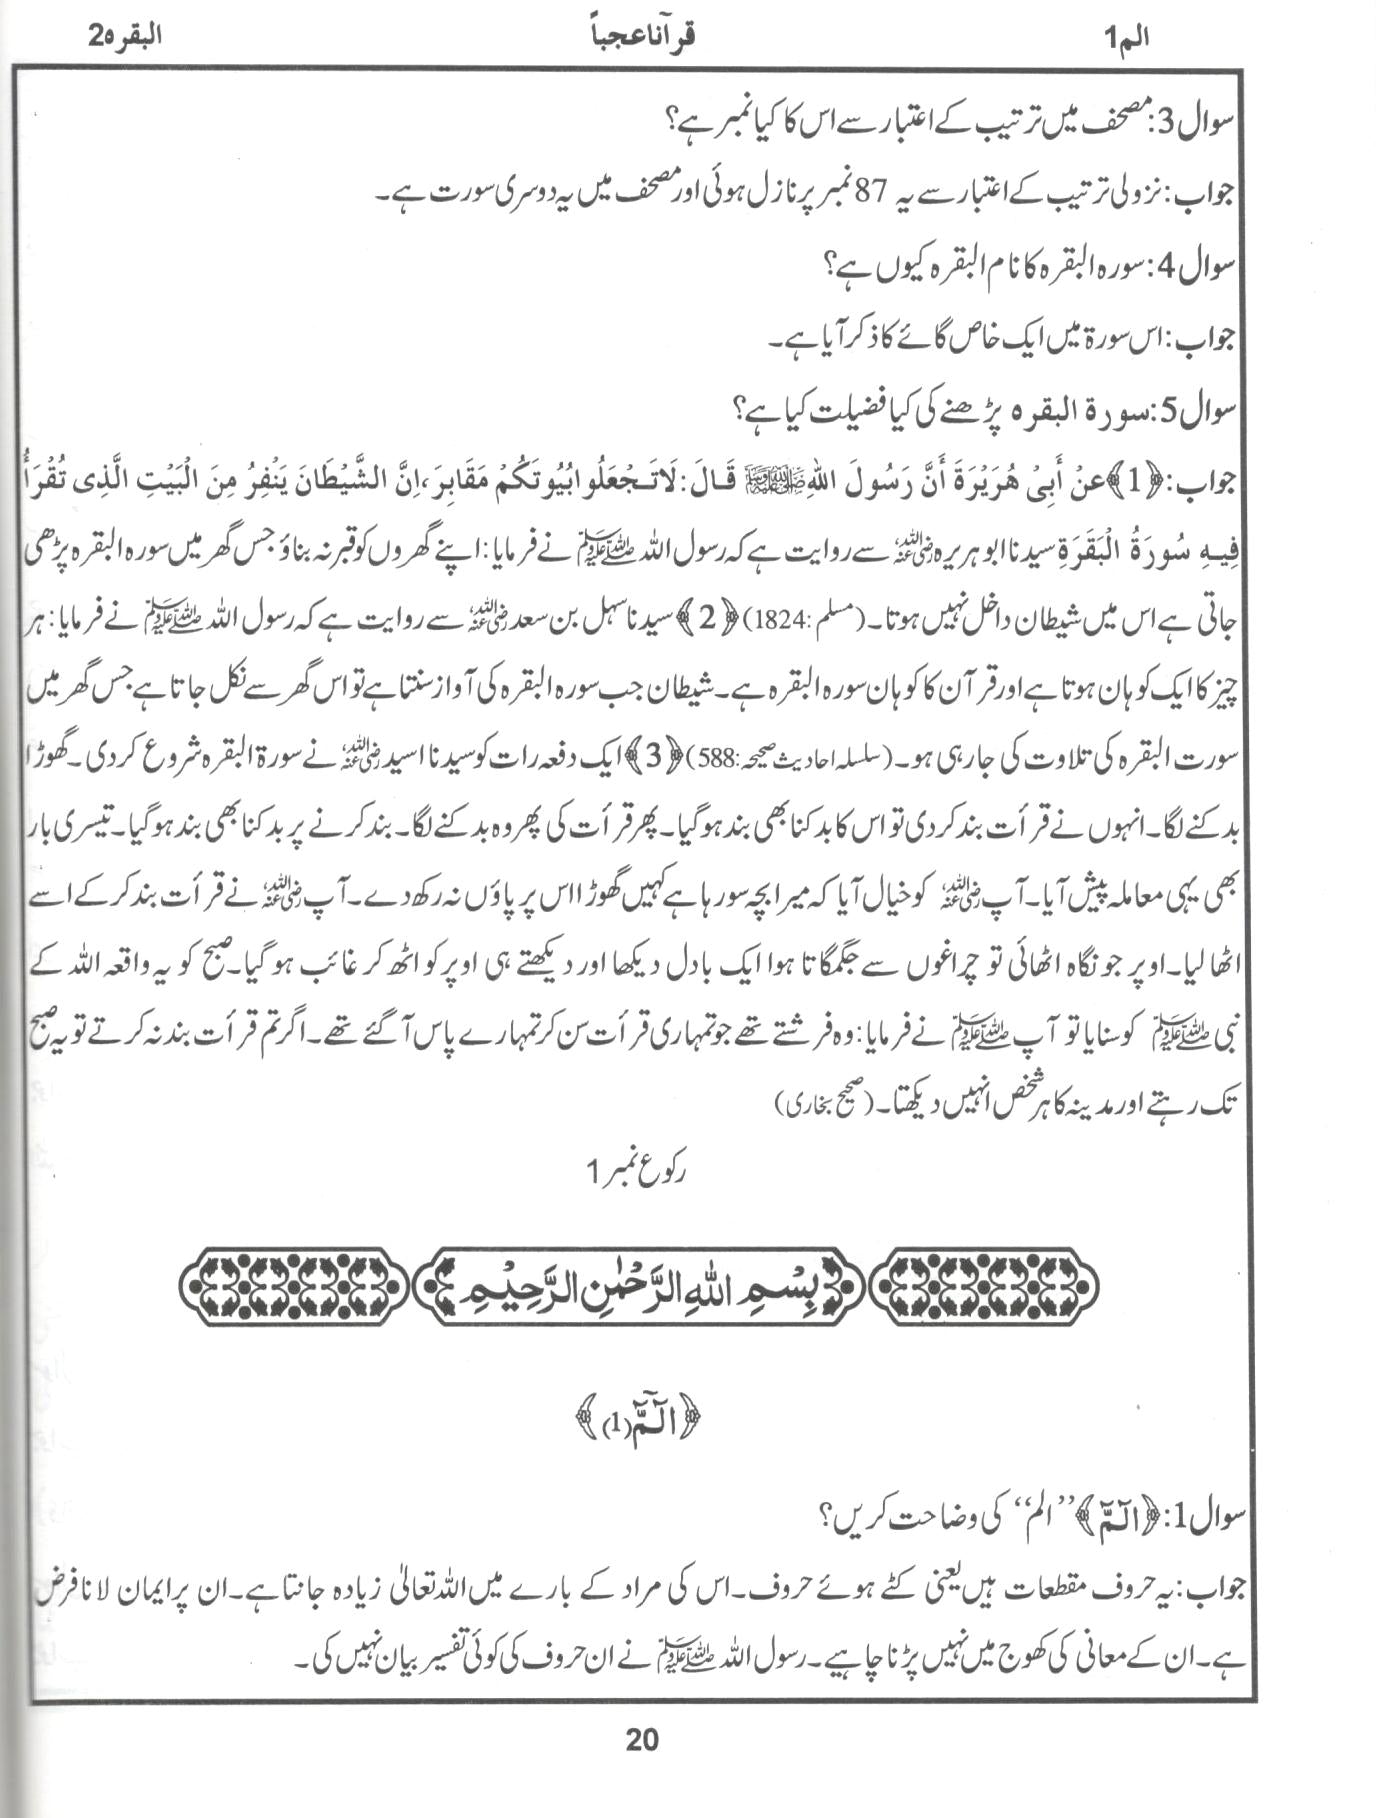 الم1
قرآناعجباً
البقرہ2
سوال3:مصحف میں ترتیب کے اعتبار سے اس کا کیا نمبر ہے؟
جواب:نزولی ترتیب کے اعتبار سے یہ 87نمبر پر نازل ہوئی اور مصحف میں یہ دوسری سورت ہے۔
سوال4:سورہ البقرہ کا نام البقرہ کیوں ہے؟
جواب:اس سورۃ میں ایک خاص گائے کا ذکر آیا ہے۔
سوال5:سورۃ البقرہ پڑھنے کی کیا فضیلت کیا ہے؟
جواب:﴿1﴾عَنْ أَبِیْ هُرَیْرَةَ أَنَّ رَسُولَ اللهِ ﷺ قَالَ:لَاتَجْعَلُوا بُیُوتَکُمْ مَقَابِرَ،اِنَّ الشَّیْطَانَ یَنْفِرُ مِنَ الْبَیْتِ الَّذِی تُقْرَأُ
فِیهِ سُورَةُ الْبَقَرَةِ سیدنا ابو ہریرہ رضی اللہ عنہ سے روایت ہے کہ رسول اللہ ﷺ نے فرمایا:اپنے گھروں کو قبر نہ بناؤ جس گھر میں سورہ البقرہ پڑھی
جاتی ہے اس میں شیطان داخل نہیں ہوتا۔(مسلم:1824)﴿2﴾سیدنا سہل بن سعد رضی اللہ عنہ سے روایت ہے کہ رسول اللہ ﷺ نے فرمایا:ہر
چیز کا ایک کوہان ہوتا ہے اور قرآن کا کوہان سورہ البقرہ ہے۔شیطان جب سورہ البقرہ کی آواز سنتا ہے تو اس گھر سے نکل جاتا ہے جس گھر میں
سورت البقرہ کی تلاوت کی جا رہی ہو۔(سلسلہ احادیث صحیحہ:588)﴿3﴾ایک دفعہ رات کو سیدنا اسید رضی اللہ عنہ نے سورۃ البقرہ شروع کر دی۔گھوڑا
بدکنے لگا۔انہوں نے قرأت بند کر دی تو اس کا بدکنا بھی بند ہو گیا۔پھر قرأت کی پھر وہ بدکنے لگا۔بند کرنے پر بدکنا بھی بند ہو گیا۔تیسری بار
بھی یہی معاملہ پیش آیا۔آپ رضی اللہ عنہ کو خیال آیا کہ میرا بچہ سو رہا ہے کہیں گھوڑا اس پر پاؤں نہ رکھ دے۔آپ رضی اللہ عنہ نے قرأت بند کر کے اسے
اٹھا لیا۔اوپر جو نگاہ اٹھائی تو چراغوں سے جگمگاتا ہوا ایک بادل دیکھا اور دیکھتے ہی اوپر کو اٹھ کر غائب ہو گیا۔صبح کو یہ واقعہ اللہ کے
نبی ﷺ کو سنایا تو آپ ﷺ نے فرمایا:وہ فرشتے تھے جو تمہاری قرأت سن کر تمہارے پاس آ گئے تھے۔اگر تم قرأت بند نہ کرتے تو یہ صبح
تک رہتے اور مدینہ کا ہر شخص انہیں دیکھتا۔(صحیح بخاری)
رکوع نمبر1
بِسْمِ اللهِ الرَّحْمٰنِ الرَّحِیْمِ
﴿الٓمّٓ(1)﴾
سوال1:﴿الٓمّٓ﴾”الم“ کی وضاحت کریں؟
جواب:یہ حروف مقطعات ہیں یعنی کٹے ہوئے حروف۔اس کی مراد کے بارے میں اللہ تعالیٰ زیادہ جانتا ہے۔ان پر ایمان لانا فرض
ہے۔ان کے معانی کی کھوج میں نہیں پڑنا چاہیے۔رسول اللہ ﷺ نے ان حروف کی کوئی تفسیر بیان نہیں کی۔
20